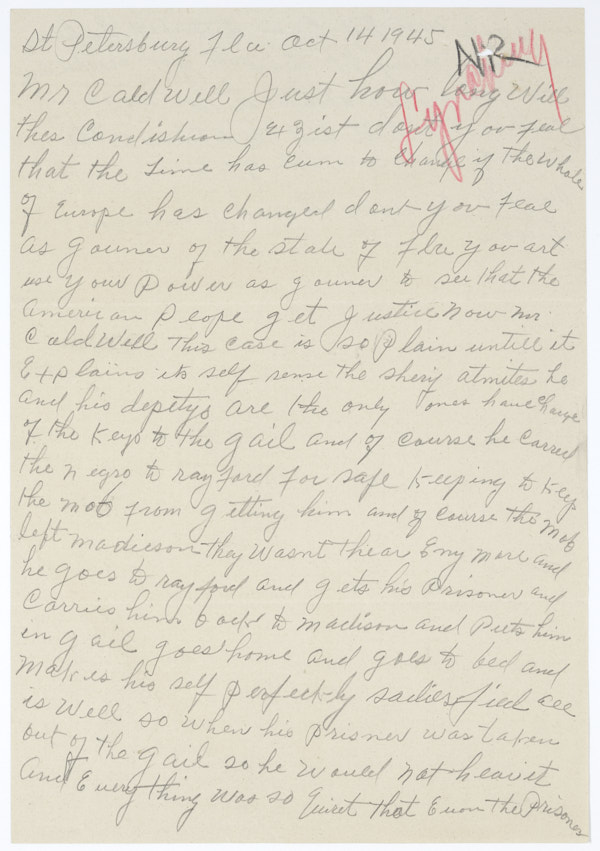 St Petersburg Fla Oct 14 1945
NR
Mr CaldWell Just how long Will
thes Condishuon Exzist dont you feal
that the time has cum to change if the Whole
of Europe has changed dont you feal
as gouner of the state of Fla you art
use your power as gouner to see that the
american peope get Justice Now Mr.
CaldWell This case is so plain untill it
Explains its self sense the sherif atmites he
and his deptys are the only ones have charge
of the Keys to the gail and of course he Carred
the negro to rayford for safe Keeping to Keep
the mob from getting him and of course the Mob
left madieson thay Wasnt thear Eny more and
he goes to rayford and gets his Prisoner and
Carries him back to Madison and Puts him
in gail goes home and goes to bed and
Makes his self perfectly sadiesfied all
is Well so When his prisner was taken
out of the gail so he Would not hear it
And Everything Was so Quiret that Euon the Prisoner